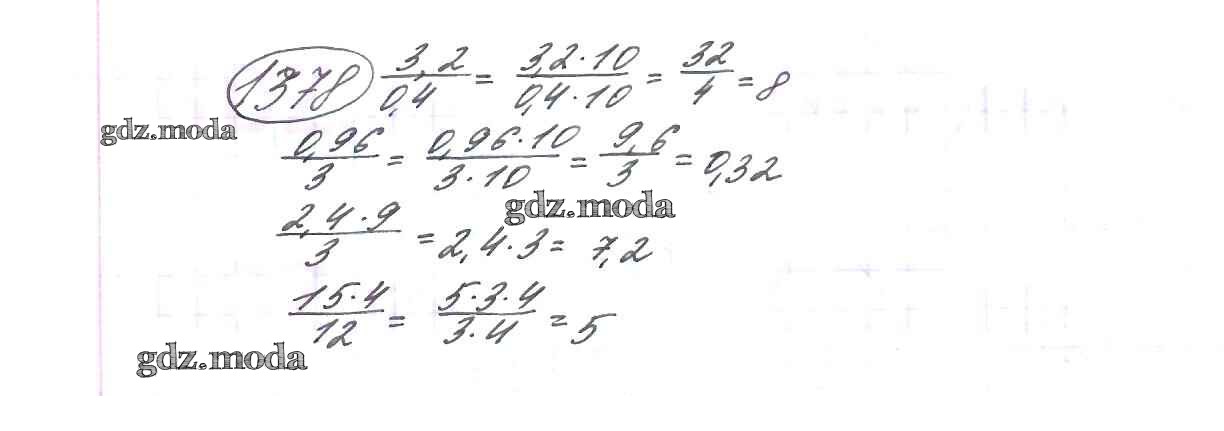 1378 3,2/0,4 = 3,2·10/0,4·10 = 32/4 = 8
gdz.moda
0,96/3 = 0,96·10/3·10 = 9,6/3 = 0,32
gdz.moda
2,4·9/3 = 2,4·3 = 7,2
15·4/12 = 5·3·4/3·4 = 5
gdz.moda